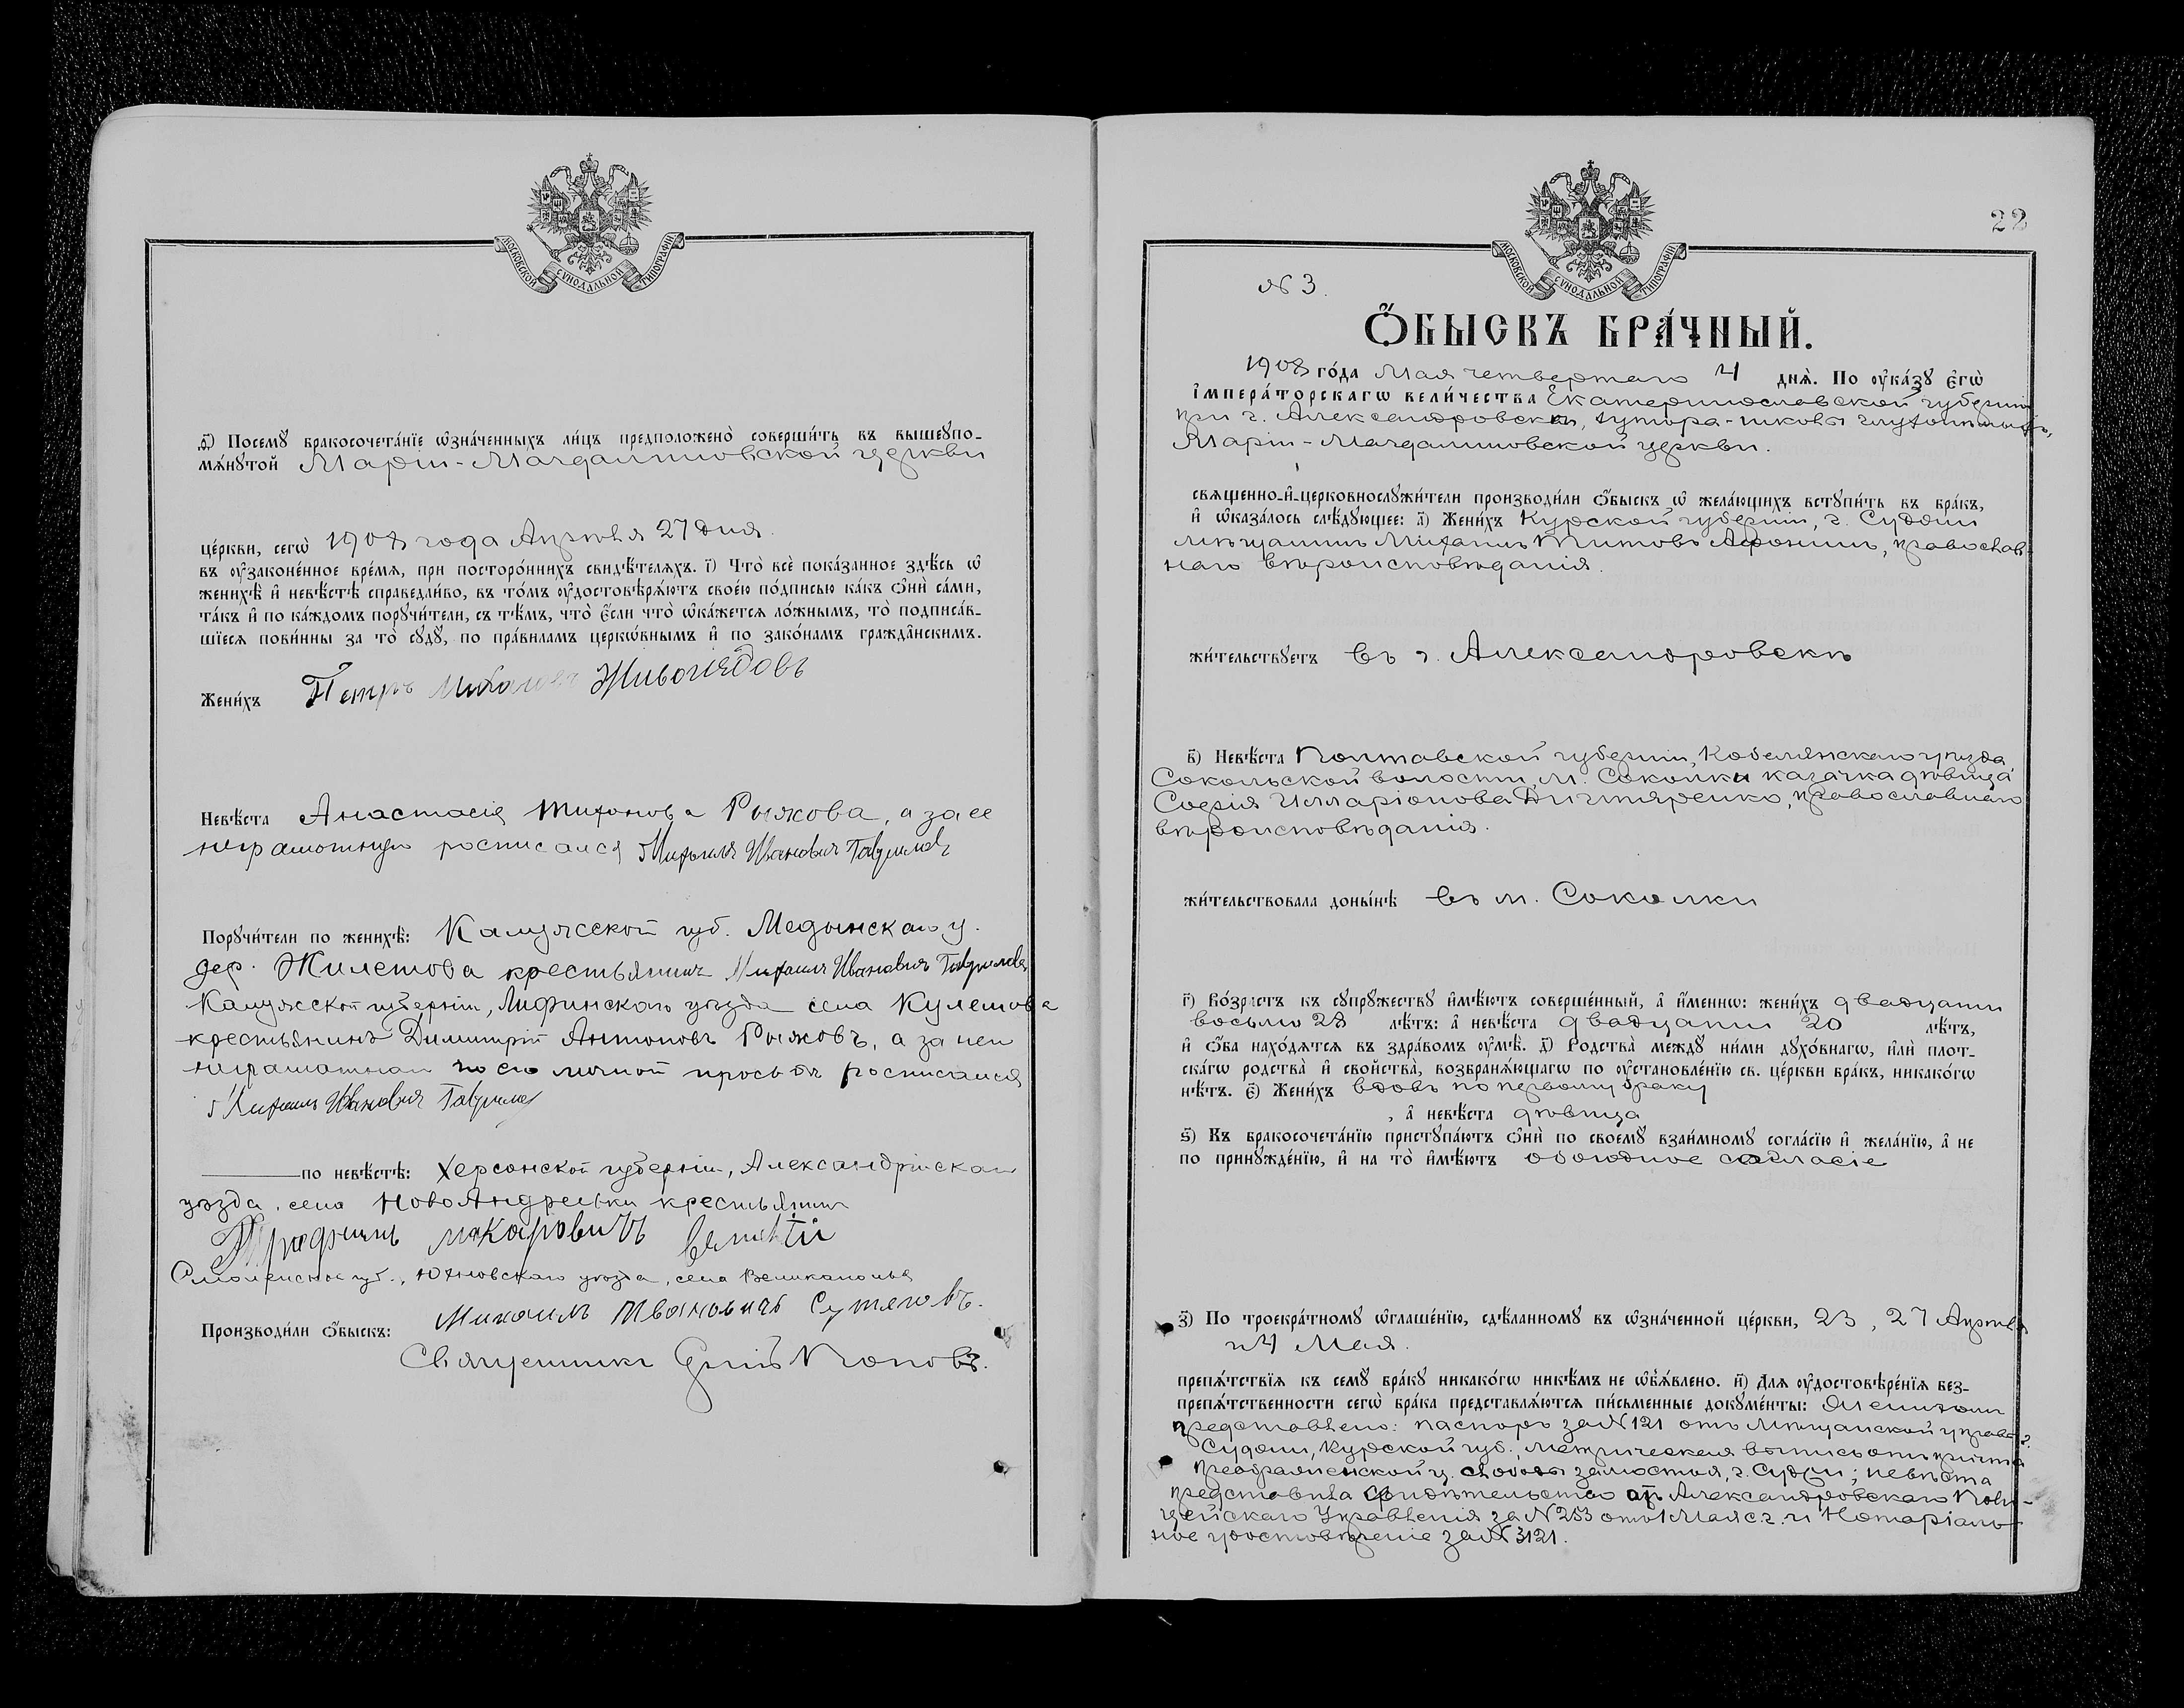 МОСКОВСКОЙ СѴНОДАЛЬНОЙ ТИПОГРАФІИ.
д҃і) Посемꙋ̀ бракосочета́нїе ѡ҆зна́ченныхъ ли́цъ предположено̀ соверши́ть въ вышеꙋпо-
мѧ́нꙋтой Маріи-Магдалиновской церкви
це́ркви, сегѡ̀ 1908 года Апрѣля 27 дня.
въ ᲂу҆законе́нное вре́мѧ, при посторо́ннихъ свидѣ́телѧхъ. і҃) Что̀ всѐ пока́занное здѣ́сь ѡ҆
женихѣ̀ и҆ невѣ́стѣ справедли́во, въ то́мъ ᲂу҆достовѣрѧ́ютъ свое́ю по́дписью ка́къ ѻ҆нѝ са́ми,
та́къ и҆ по ка́ждомъ порꙋчи́тели, съ тѣ́мъ, что̀ є҆́сли что̀ ѡ҆ка́жетсѧ ло́жнымъ, то̀ подписа́в-
шїесѧ пови́нны за то̀ сꙋдꙋ̀, по пра́виламъ церкѡ́внымъ и҆ по зако́намъ гражда̑нскимъ.
Жени́хъ Петръ Михаилов Живоглядовъ
Невѣ́ста Анастасія Тихонова Рыжова, а за ее
неграмотную росписался Михаилъ Ивановичъ Гавриловъ
Порꙋчи́тели по женихѣ̀: Калужской губ. Медынскаго у.
дер. Жилетова крестьянинъ Михаилъ Ивановичъ Гавриловъ
Калужской губерніи, Лифинскаго уѣзда села Кулешова
крестьянинъ Димитрій Антоновъ Рыжовъ, а за него
неграматнаго по его личной просьбѣ росписался
Михаилъ Ивановичъ Гаврилов
по невѣ́стѣ: Херсонской губерніи, Александрійскаго
уѣзда, села НовоАндреевки крестьянинъ
макаровичъ
Смоленской губ., Юхновскаго уѣзда, села Великополья
Михаилъ Ивановичъ Сутяговъ.
Производи́ли ѻ҆́быскъ:
Священникъ Поповъ.
22
МОСКОВСКОЙ СѴНОДАЛЬНОЙ ТИПОГРАФІИ.
№ 3.
Ѻ҆БЫСКЪ БРА́ЧНЫЙ.
1908 го́да Мая четвертаго 4 днѧ̀. По ᲂу҆ка́зꙋ є҆гѡ̀
і҆мпера́торскагѡ вели́чества Екатеринославской губерніи
при г. Александровскѣ, хутора-школы глухонѣмыхъ,
Маріи-Магдалиновской церкви.
свѧщенно-и҆-церковнослꙋжи́тели производи́ли ѻ҆́быскъ ѡ҆ жела́ющихъ встꙋпи́ть въ бра́къ,
и҆ ѡ҆каза́лось слѣ́дꙋющее: а҃) Жени́хъ Курской губерніи, г. Суджи
мѣщанинъ Михаилъ Титовъ Афонинъ, православ-
наго вѣроисповѣданія.
жи́тельствꙋетъ въ г. Александровскѣ
в҃) Невѣ́ста Полтавской губерніи, Кобелякскаго уѣзда
Сокольской волости, м. Соколки казачка дѣвица
Софія Илларіонова Дигтяренко, православнаго
вѣроисповѣданія.
жи́тельствовала доны́нѣ въ м. Соколки
г҃) Во́зрастъ къ сꙋпрꙋ́жествꙋ и҆мѣ́ютъ соверше́нный, а҆ и҆́меннѡ: жени́хъ двадцати
восьми 28 лѣ́тъ: а҆ невѣ́ста двадцати 20 лѣ́тъ,
и҆ ѻ҆́ба нахо́дѧтсѧ въ здра́вомъ ᲂу҆мѣ̀. д҃) Родства̀ междꙋ̀ ни́ми дꙋхо́внагѡ, и҆лѝ плот-
ска́гѡ родства̀ и҆ свойства̀, возбранѧ́ющагѡ по ᲂу҆становле́нїю св. це́ркви бра́къ, никако́гѡ
нѣ́тъ. є҃) Жени́хъ вдовъ по первому браку
, а҆ невѣ́ста дѣвица
ѕ҃) Къ бракосочета́нїю пристꙋпа́ютъ ѻ҆нѝ по своемꙋ̀ взаи́мномꙋ согла́сїю и҆ жела́нїю, а҆ не
по принꙋжде́нїю, и҆ на то̀ и҆мѣ́ютъ обоюдное согласіе
з҃) По троекра́тномꙋ ѡ҆глаше́нїю, сдѣ́ланномꙋ въ ѡ҆зна́ченной це́ркви, 23, 27 Апрѣля
и 4 Мая.
препѧ́тствїѧ къ семꙋ̀ бра́кꙋ никако́гѡ никѣ́мъ не ѡ҆б̾ѧ́влено. и҃) Длѧ ᲂу҆достовѣре́нїѧ без-
препѧ́тственности сегѡ̀ бра́ка представлѧ́ютсѧ пи́сьменные докꙋме́нты: Женихом
представлено: паспорт за № 121 отъ Мѣщанской управы г.
Суджи, Курской губ., метрическая выпись отъ причта
Преображенской ц. слободы замостья, г. Суджи; невѣста
представила свидѣтельство отъ Александровскаго Поли-
цейскаго Управленія за № 253 отъ 1 Мая с. г. и Нотаріаль-
ное удостовѣреніе за № 3121.